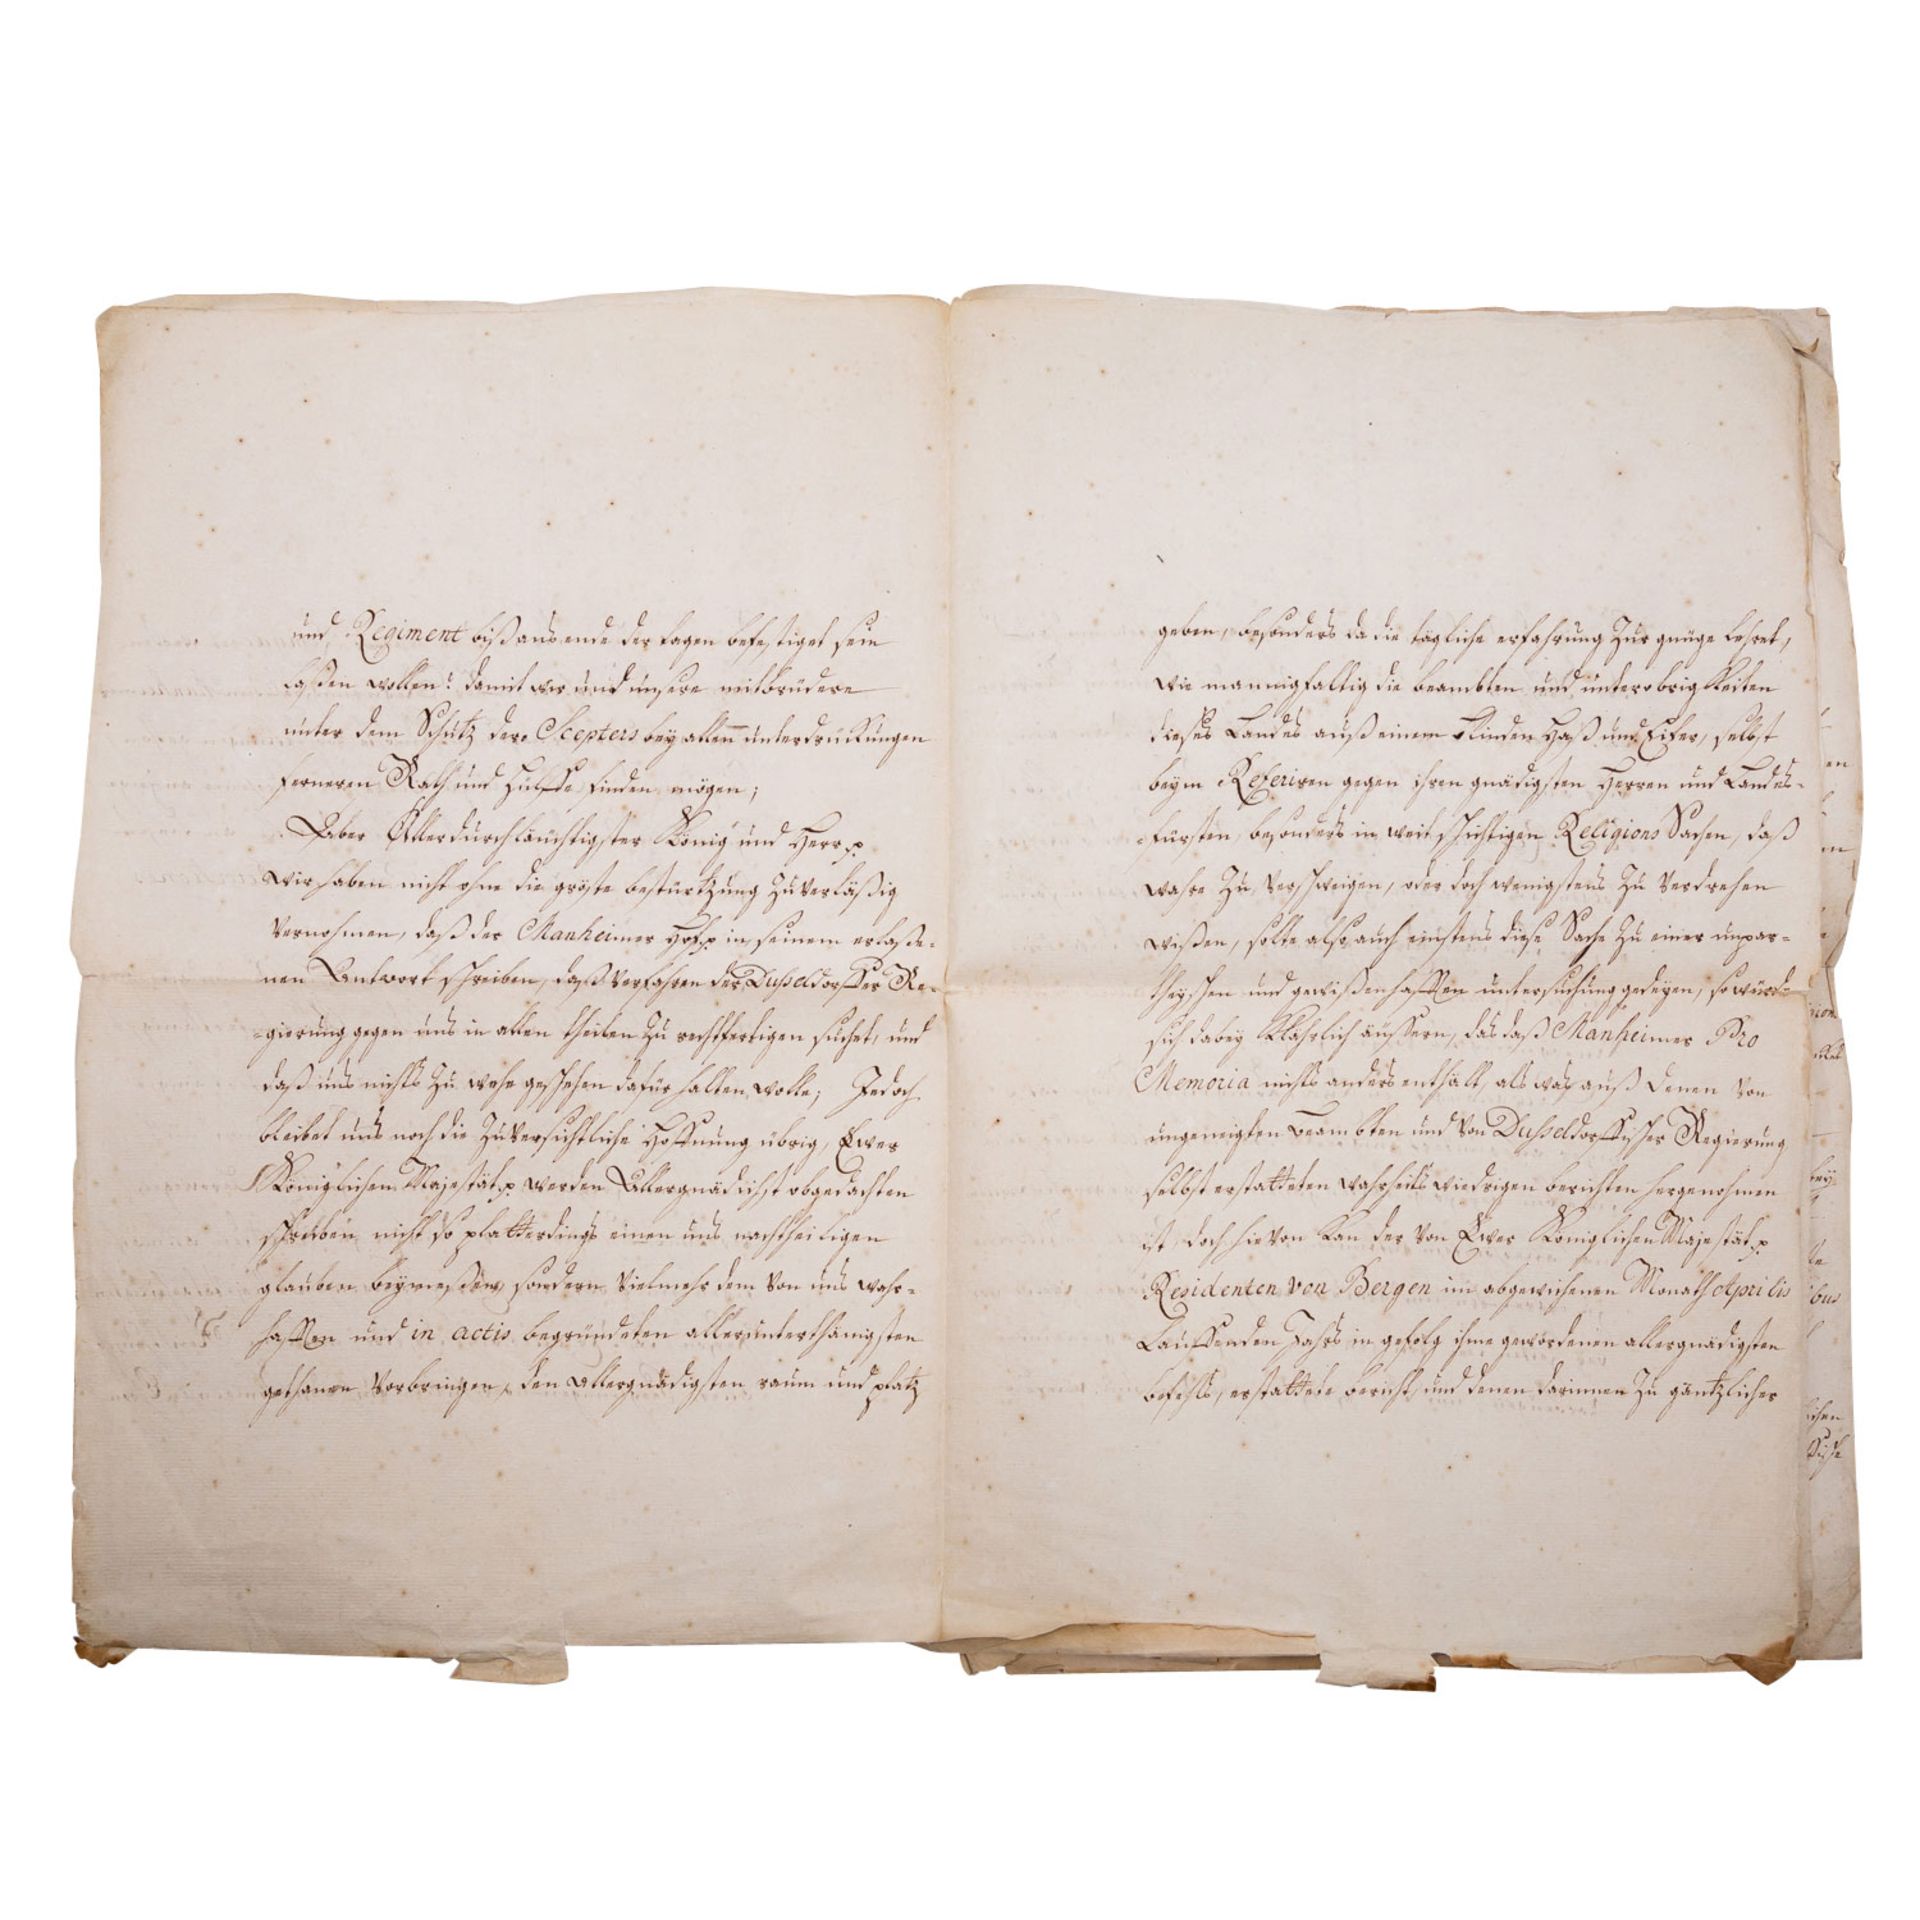 und Regiment biß ans ende der tagen befestiget sein
laßen wollen! damit wir und unsere mitbrüdere
unter dem Schutz dero Scepters bey allen unterdrückungen
ferneren Rath und Hülffe finden mögen;
Aber Allerdurchläuchtigster König und Herr p
wir haben nicht ohne die gröste bestürtzung zuverläßig
vernohmen, daß der Manheimer Hof p in seinem erlaße-
nen Antwort schreiben, daß verfahren der Dußeldorffer Re-
-gierung gegen uns in allen theilen zu rechtfertigen suchet, und
daß uns nichts zu wehe geschehen dafür halten wolle; Jedoch
bleibet uns noch die zuversichtliche Hoffnung übrig, Ewer
Königlichen Majestät p werden Allergnädichst obgedachten
schreiben nicht so platterdings einen uns nachtheiligen
glauben beymeßen, sondern vielmehr dem von uns wahr-
hafften und in actis begründeten allerunterthänigsten
gethanen vorbringen, den allergnädigsten raum und platz
geben, besonders da die tägliche erfahrung zur gnüge lehret,
wie mannigfaltig die beambten und unterobrigkeiten
dieses Landes auß einem blinden Haß und Eifer, selbst
beym Referiren gegen ihren gnädigsten Herren und Landes-
-fürsten, besonders in weit schichtigen Religions Sachen, daß
wahre zu verschweigen, oder doch wenigstens zu verdrehen
wißen, solte also auch einstens diese Sache zu einer unpar-
theyschen und gewißenhafften untersuchung gedeyen, so würde
sich dabey klährlich äussern, das daß Manheimer Pro
Memoria nichts anders enthält, als was auß denen von
ungeneigten beambten und von Dußeldorffischer Regierung
selbst erstatteten wahrheits wiedrigen berichten hergenohmen
ist, doch hievon kan der von Ewer Königlichen Majestät p
Residenten von Bergen im abgewichenen Monath Aprilis
Lauffenden Jahrs in gefolg ihme gewordenen allergnädigsten
befehls, erstattete bericht, und denen darinnen zu gäntzlicher